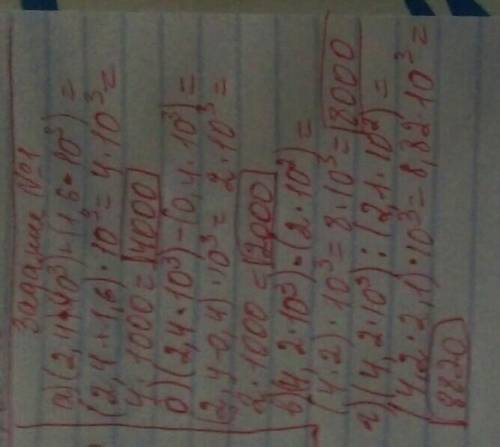 Задание №1
а) (2,4•10³)+(1,6•10³)=
(2,4+1,6)•10³=4•10³=
4•1000=4000
б) (2,4•10³)-(0,4•10³)=
(2,4-0,4)•10³=2•10³=
2•1000=2000
в) (4,2•10³)•(2•10²)=
(4•2)•10³=8•10³=8000
г) (4,2•10³):(2,1•10²)=
(4,2•2,1)•10³=8,82•10³=
8820